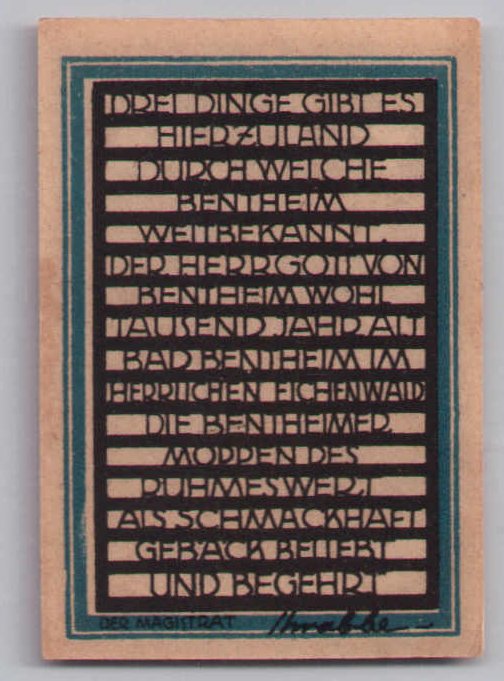 DREI DINGE GIBT ES
HIERZULAND
DURCH WELCHE
BENTHEIM
WELTBEKANNT.
DER HERRGOTT VON
BENTHEIM WOHL
TAUSEND JAHR ALT
BAD BENTHEIM IM
HERRLICHEN EICHENWALD
DIE BENTHEIMER
MOPPEN DES
RUHMES WERT
ALS SCHMACKHAFT
GEBÄCK BELIEBT
UND BEGEHRT
DER MAGISTRAT